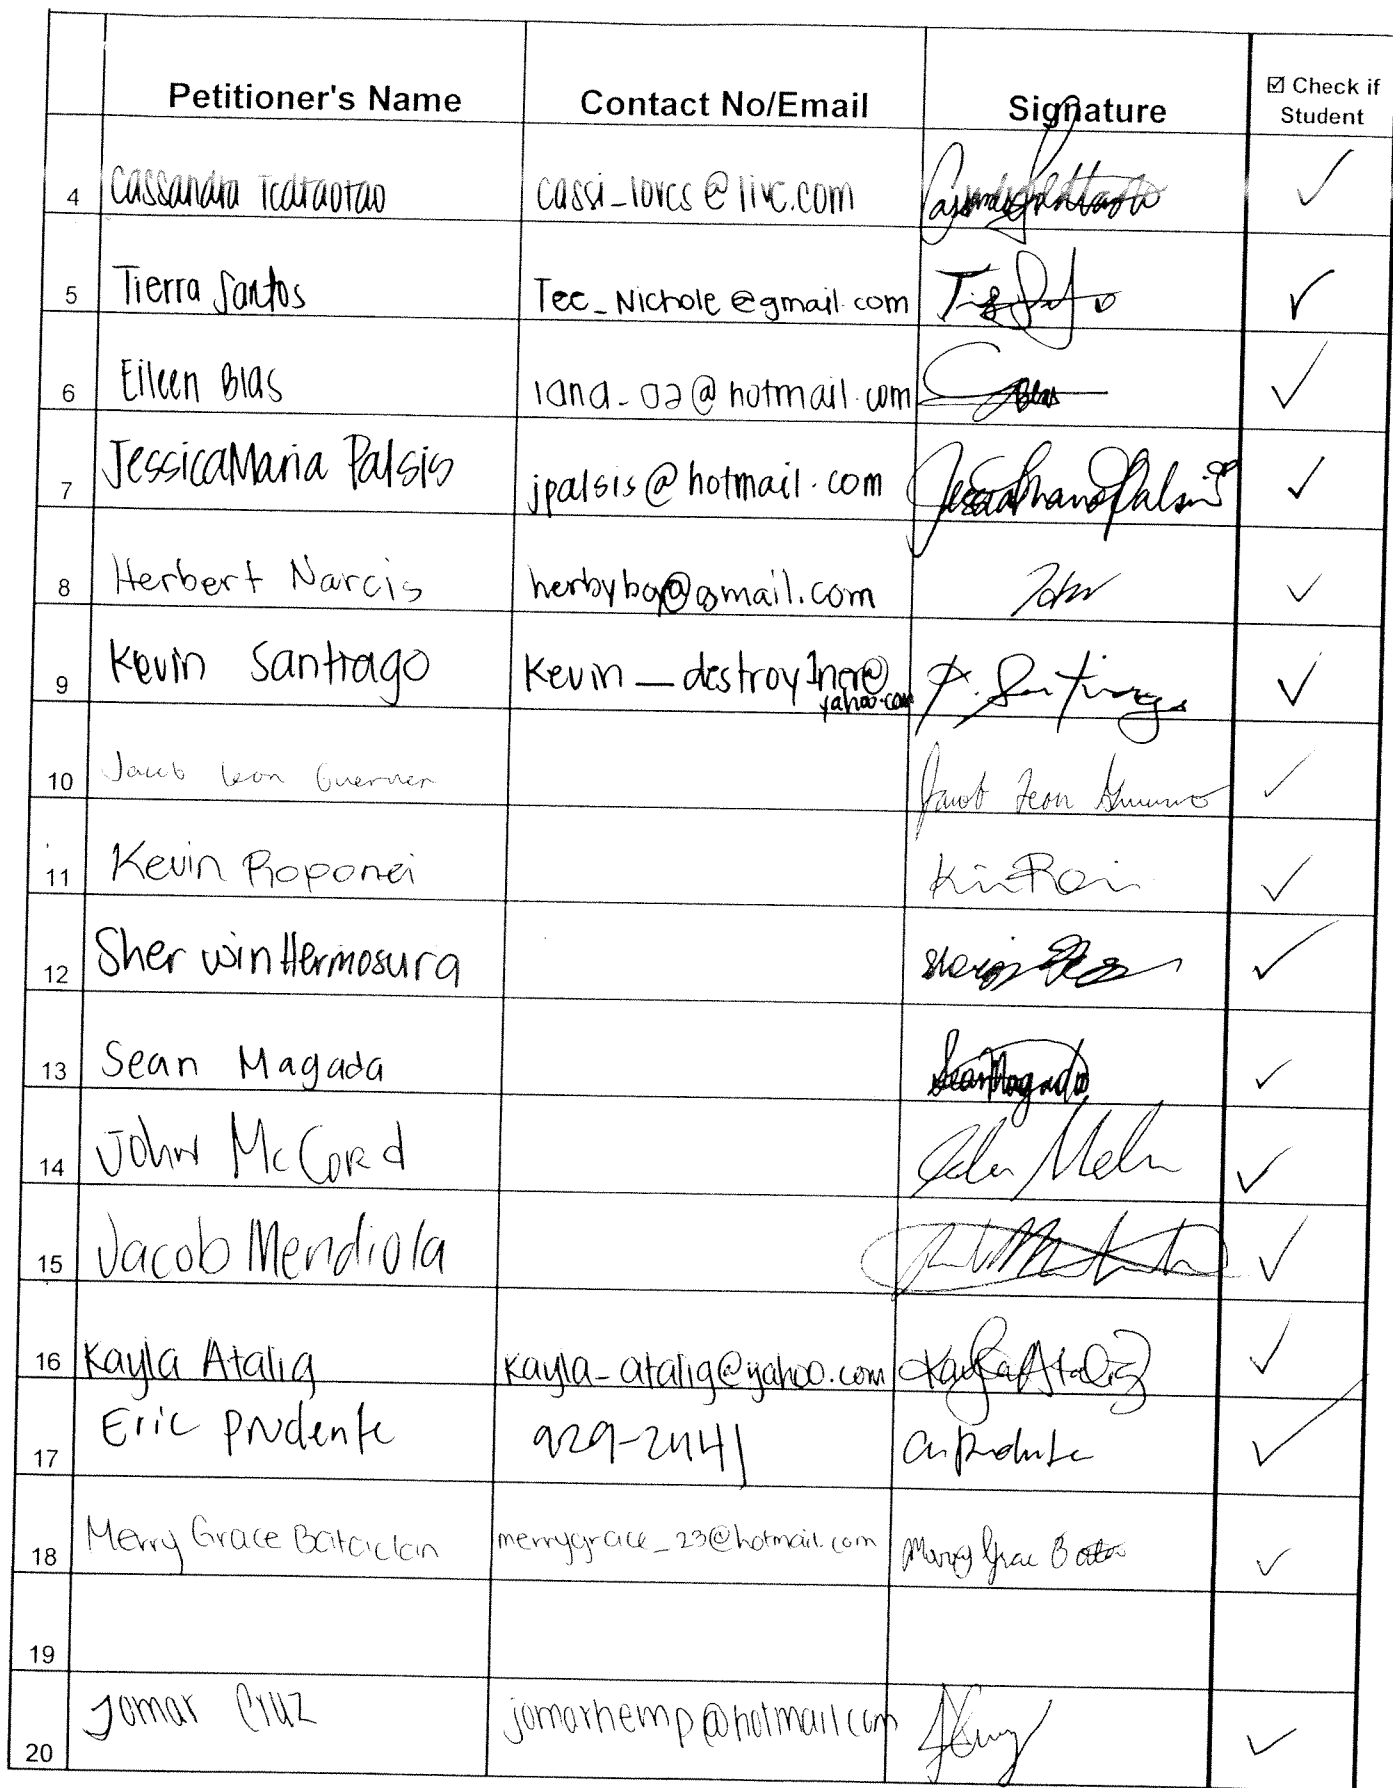 Petitioner's Name Contact No/Email Signature ☑ Check if
Student
4 Cassandra cassi_loves@live.com ✓
5 Tierra Santos Tee_Nichole@gmail.com ✓
6 Eileen Blas lana_02@hotmail.com ✓
7 JessicaMaria Palsis jpalsis@hotmail.com JessicaMariaPalsis ✓
8 Herbert Narcis @gmail.com ✓
9 Kevin Santiago Kevin_destroy1ner@ K. Santiago ✓
yahoo.com
10 Jacob Leon Guerrero Jacob Leon Guerrero ✓
11 Kevin Roponei ✓
12 Sherwin Hermosura ✓
13 Sean Magada Sean Magada ✓
14 John McCord ✓
15 Jacob Mendiola ✓
16 Kayla Atalig Kayla_atalig@yahoo.com Kayla Atalig ✓
17 Eric Prudente 929-2441 ✓
18 Merry Grace Bataclan merrygrace_23@hotmail.com ✓
19
20 Jomar Cruz jomarhemp@hotmail.com ✓